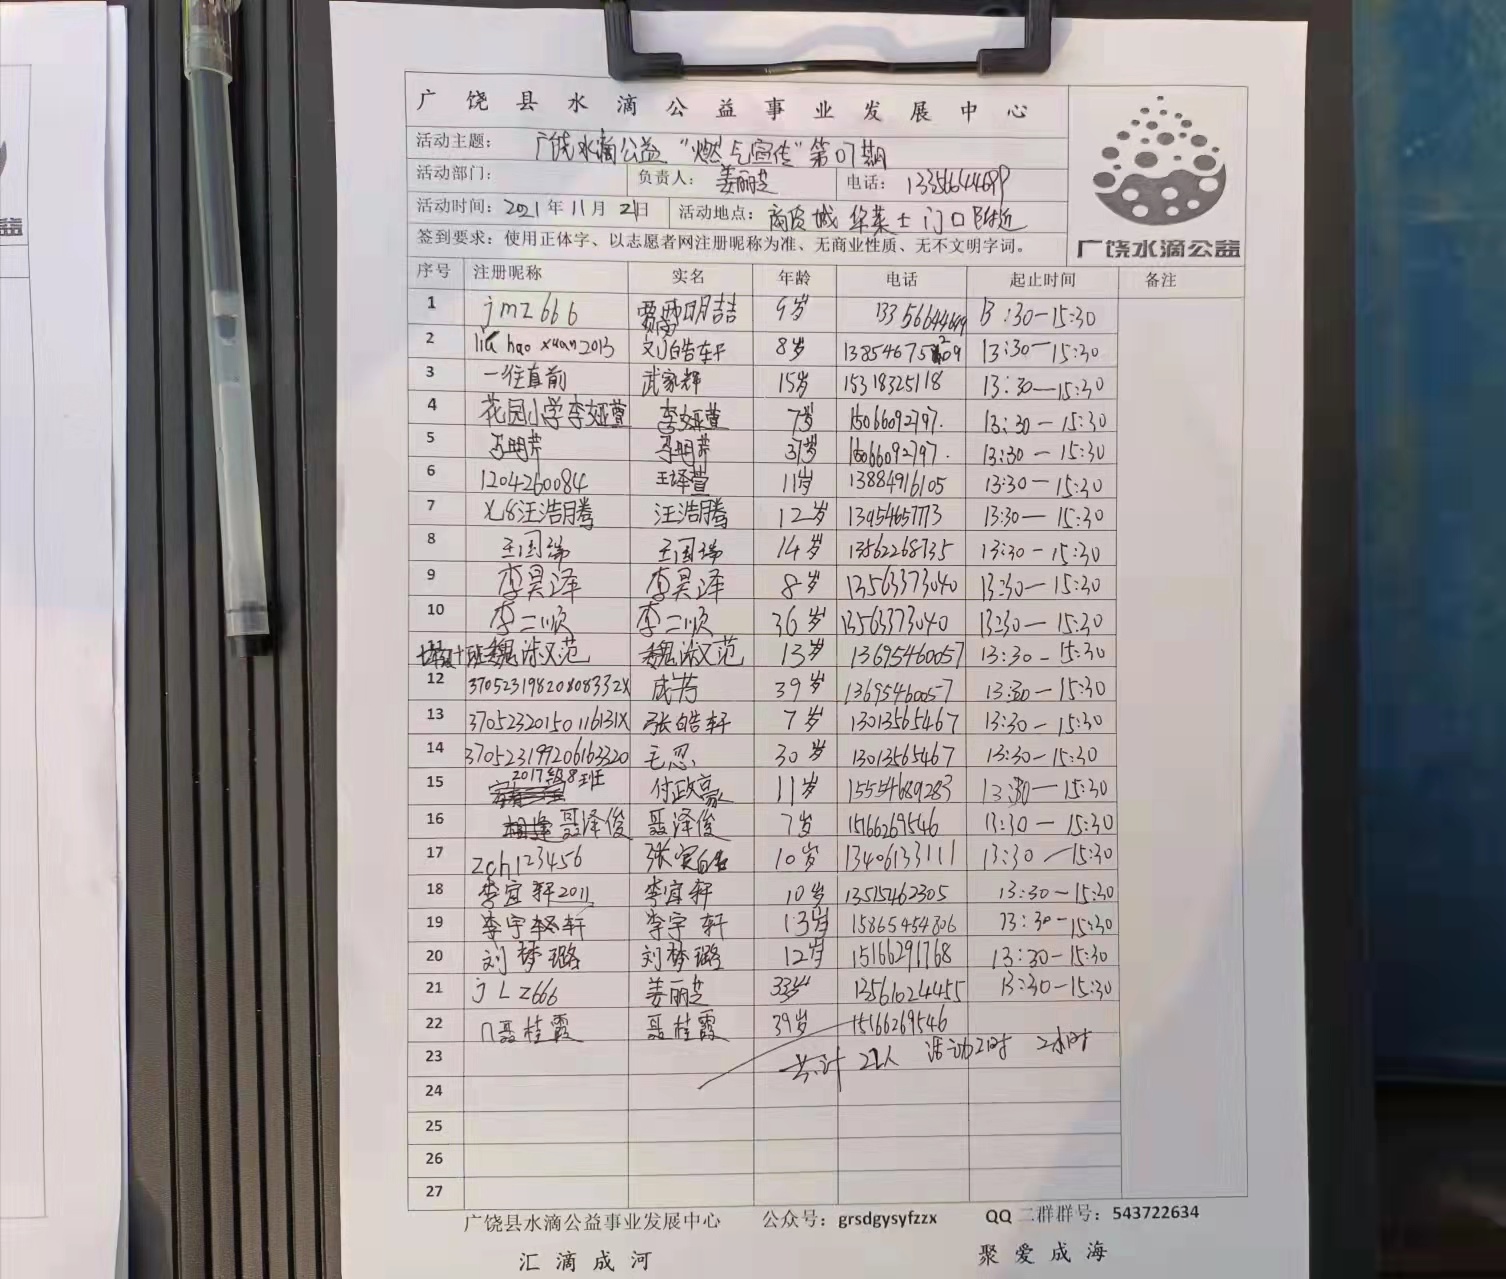 广饶县水滴公益事业发展中心
活动主题： 广饶水滴公益“燃气宣传”第07期
活动部门： 负责人：姜丽芝 电话：
活动时间：2021年11月21日 活动地点：商贸城 华莱士门口附近
签到要求：使用正体字、以志愿者网注册昵称为准、无商业性质、无不文明字词。
广饶水滴公益
序号 注册昵称 实名 年龄 电话 起止时间 备注
1 jmz666 明喆 9岁 13:30—15:30
2 liu hao xuan 2013 刘皓轩 8岁 13:30—15:30
3 一往直前 武家辉 15岁 15318325118 13:30—15:30
4 花园小学李娅萱 李娅萱 7岁 15066092797. 13:30—15:30
5 37岁 15066092797. 13:30—15:30
6 1204260084 王译萱 11岁 13884916105 13:30—15:30
7 汪浩腾 汪浩腾 12岁 13954657773 13:30—15:30
8 王国瑞 王国瑞 14岁 13562268735 13:30—15:30
9 李昊泽 李昊泽 8岁 13563373040 13:30—15:30
10 李二顺 李二顺 36岁 13563373040 13:30—15:30
11 十班魏淑范 魏淑范 13岁 13695460057 13:30-15:30
12 37052319820808332X 成芳 39岁 13695460057 13:30—15:30
13 37052320150116131X 张皓轩 7岁 13013565467 13:30—15:30
14 370523199206163320 毛忍 30岁 13013565467 13:30—15:30
15 2017级8班 付政豪 11岁 15554689283 13:30—15:30
16 聂泽俊 聂泽俊 7岁 15166269546 13:30—15:30
17 zch123456 张 10岁 13406133111 13:30—15:30
18 李宜轩2011 李宜轩 10岁 13515462305 13:30—15:30
19 李宇轩 李宇轩 13岁 15865454806 13:30-15:30
20 刘梦璐 刘梦璐 12岁 15166291768 13:30-15:30
21 jLz666 姜丽芝 33岁 13561024455 13:30-15:30
22 聂桂霞 聂桂霞 39岁 15166269546
23 共计 22人 活动时 2小时
24
25
26
27
广饶县水滴公益事业发展中心 公众号：grsdgysyfzzx QQ 二群群号：543722634
汇滴成河 聚爱成海